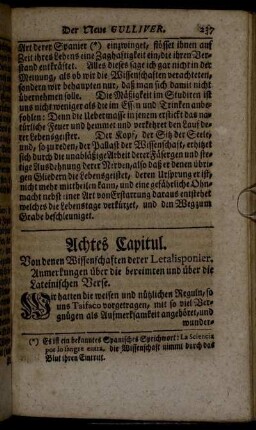 Der Neue GULLIVER. 237
Art derer Spanier (*) eingwinget, flösset ihnen auf
Zeit ihres Lebens eine Zaghafftigkeit ein, die ihren Ver-
stand entkräftet. Alles dieses sage ich gar nicht in der
Meinung, als ob wir die Wissenschafften verachteten,
sondern wir behaupten nur, daß man sich damit nicht
übernehmen solle. Die Mäßigkeit im Studiren ist
uns nicht weniger als die im Essen und Trinken anbe-
fohlen: Denn die Uebermasse in jenem erstickt das na-
türliche Feuer und hemmet und verkehret den Lauf de-
rer Lebensgeister. Der Kopf, der Sitz der Seele,
und, so zu reden, der Pallast der Wissenschafft, erhitzet
sich durch die unabläßige Arbeit derer Fäsergen und ste-
tige Ausdehnung derer Nerven, also daß er denen übri-
gen Gliedern die Lebensgeister, deren Ursprung er ist,
nicht mehr mittheilen kan, und eine gefährliche Ohn-
macht nebst einer Art von Erstarrung daraus entstehet
welches die Lebenstage verkürzet, und den Weg zum
Grabe beschleuniget.
Achtes Capitul.
Von denen Wissenschafften derer Letalisponier.
Anmerkungen über die bereimten und über die
Lateinischen Verse.
Wir hatten die weisen und nützlichen Reguln, so
uns Taifaco vorgetragen, mit so viel Ver-
gnügen als Aufmerksamkeit angehöret, und
wunder-
(*) Es ist ein bekanntes Spanisches Sprichwort: La Sciencia
por la sangre entra, die Wissenschafft nimmt durch das
Blut ihren Eintritt.